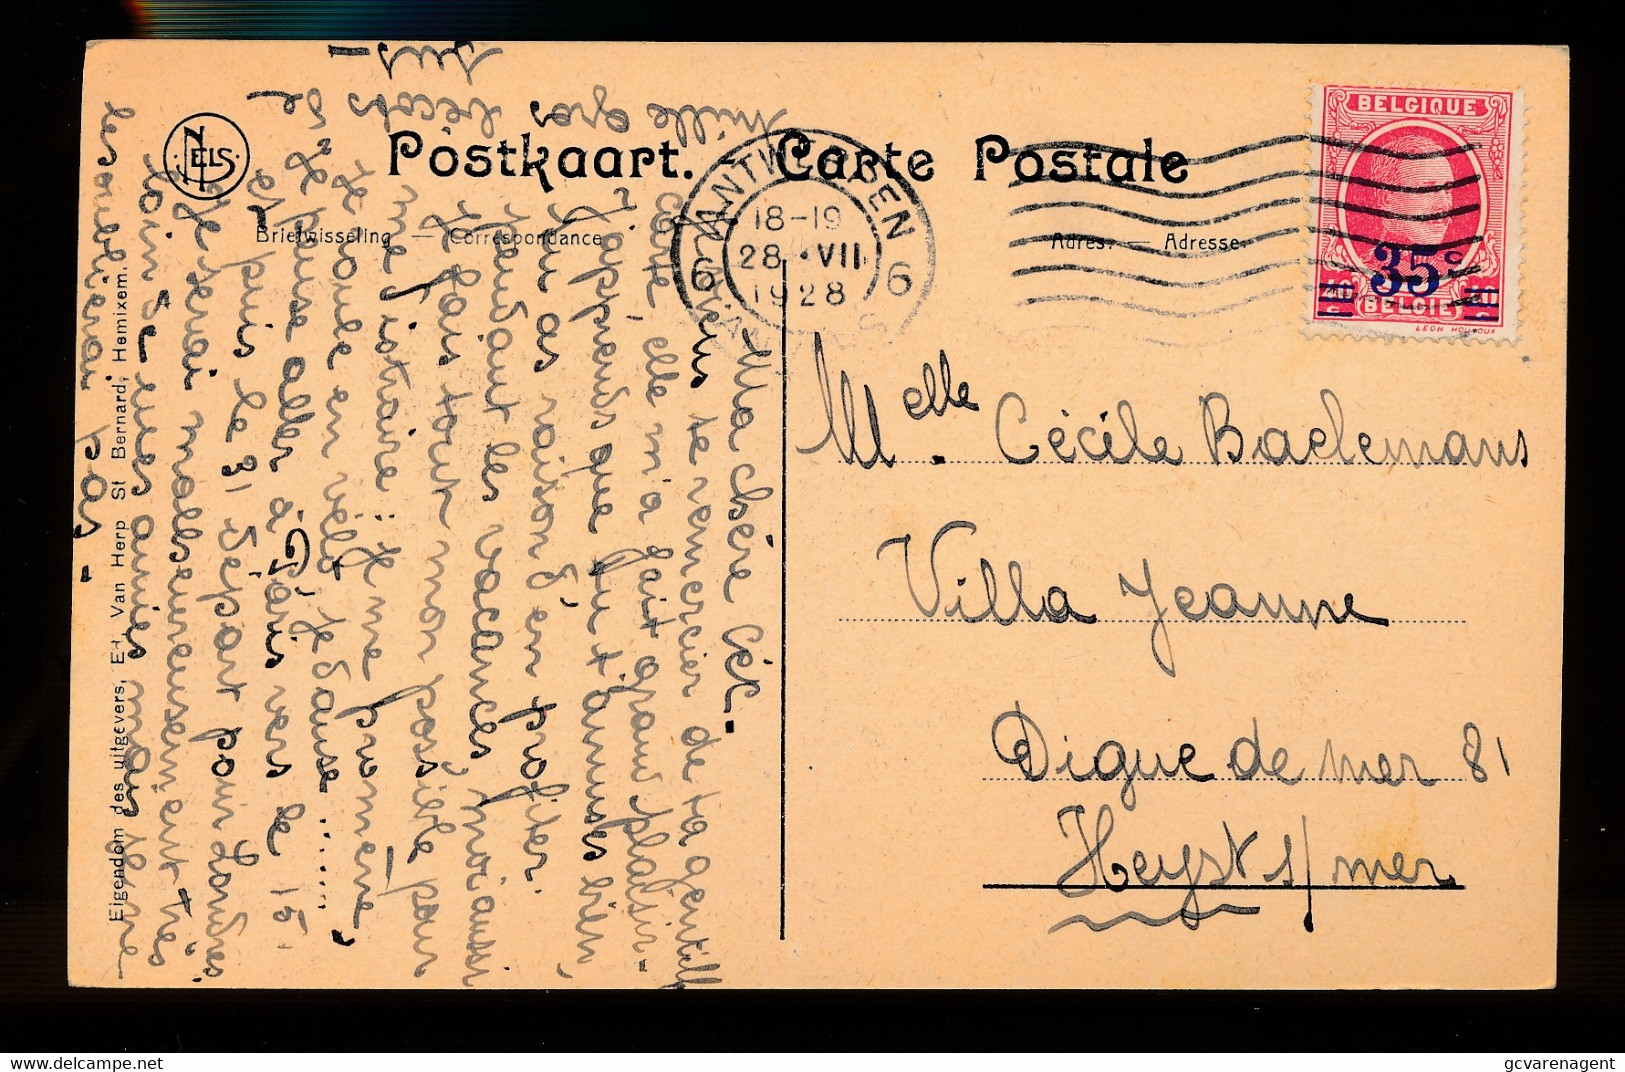 Postkaart. Carte Postale
NELS
Briefwisseling — Correspondance
Adres. — Adresse
ANTWERPEN
6 6
18-19
28 · VII
1928
ANVERS
BELGIQUE
35c
40 40
c c
BELGIË
LEON HOUYOUX
Melle. Cécile Baelemans
Villa Jeanne
Digue de mer 81
Heyst s/mer
Ma chère Céc.
Je viens te remercier de ta gentille
carte, elle m'a fait grand plaisir.
J'apprends que tu t'amuses bien,
tu as raison d'en profiter.
pendant les vacances, moi aussi
je fais tout mon possible pour
me distraire: je me promène,
je roule en vélo, je danse ......
Je puise aller à Paris vers le 15
et puis le 31 départ pour Londres
Je serai malheureusement très
loin de mes amies mais je ne
les oublierai pas -
Mille gros
bécots de
Sus-
Eigendom des uitgevers, Ed. Van Herp St Bernard, Hemixem.
gcvarenagent